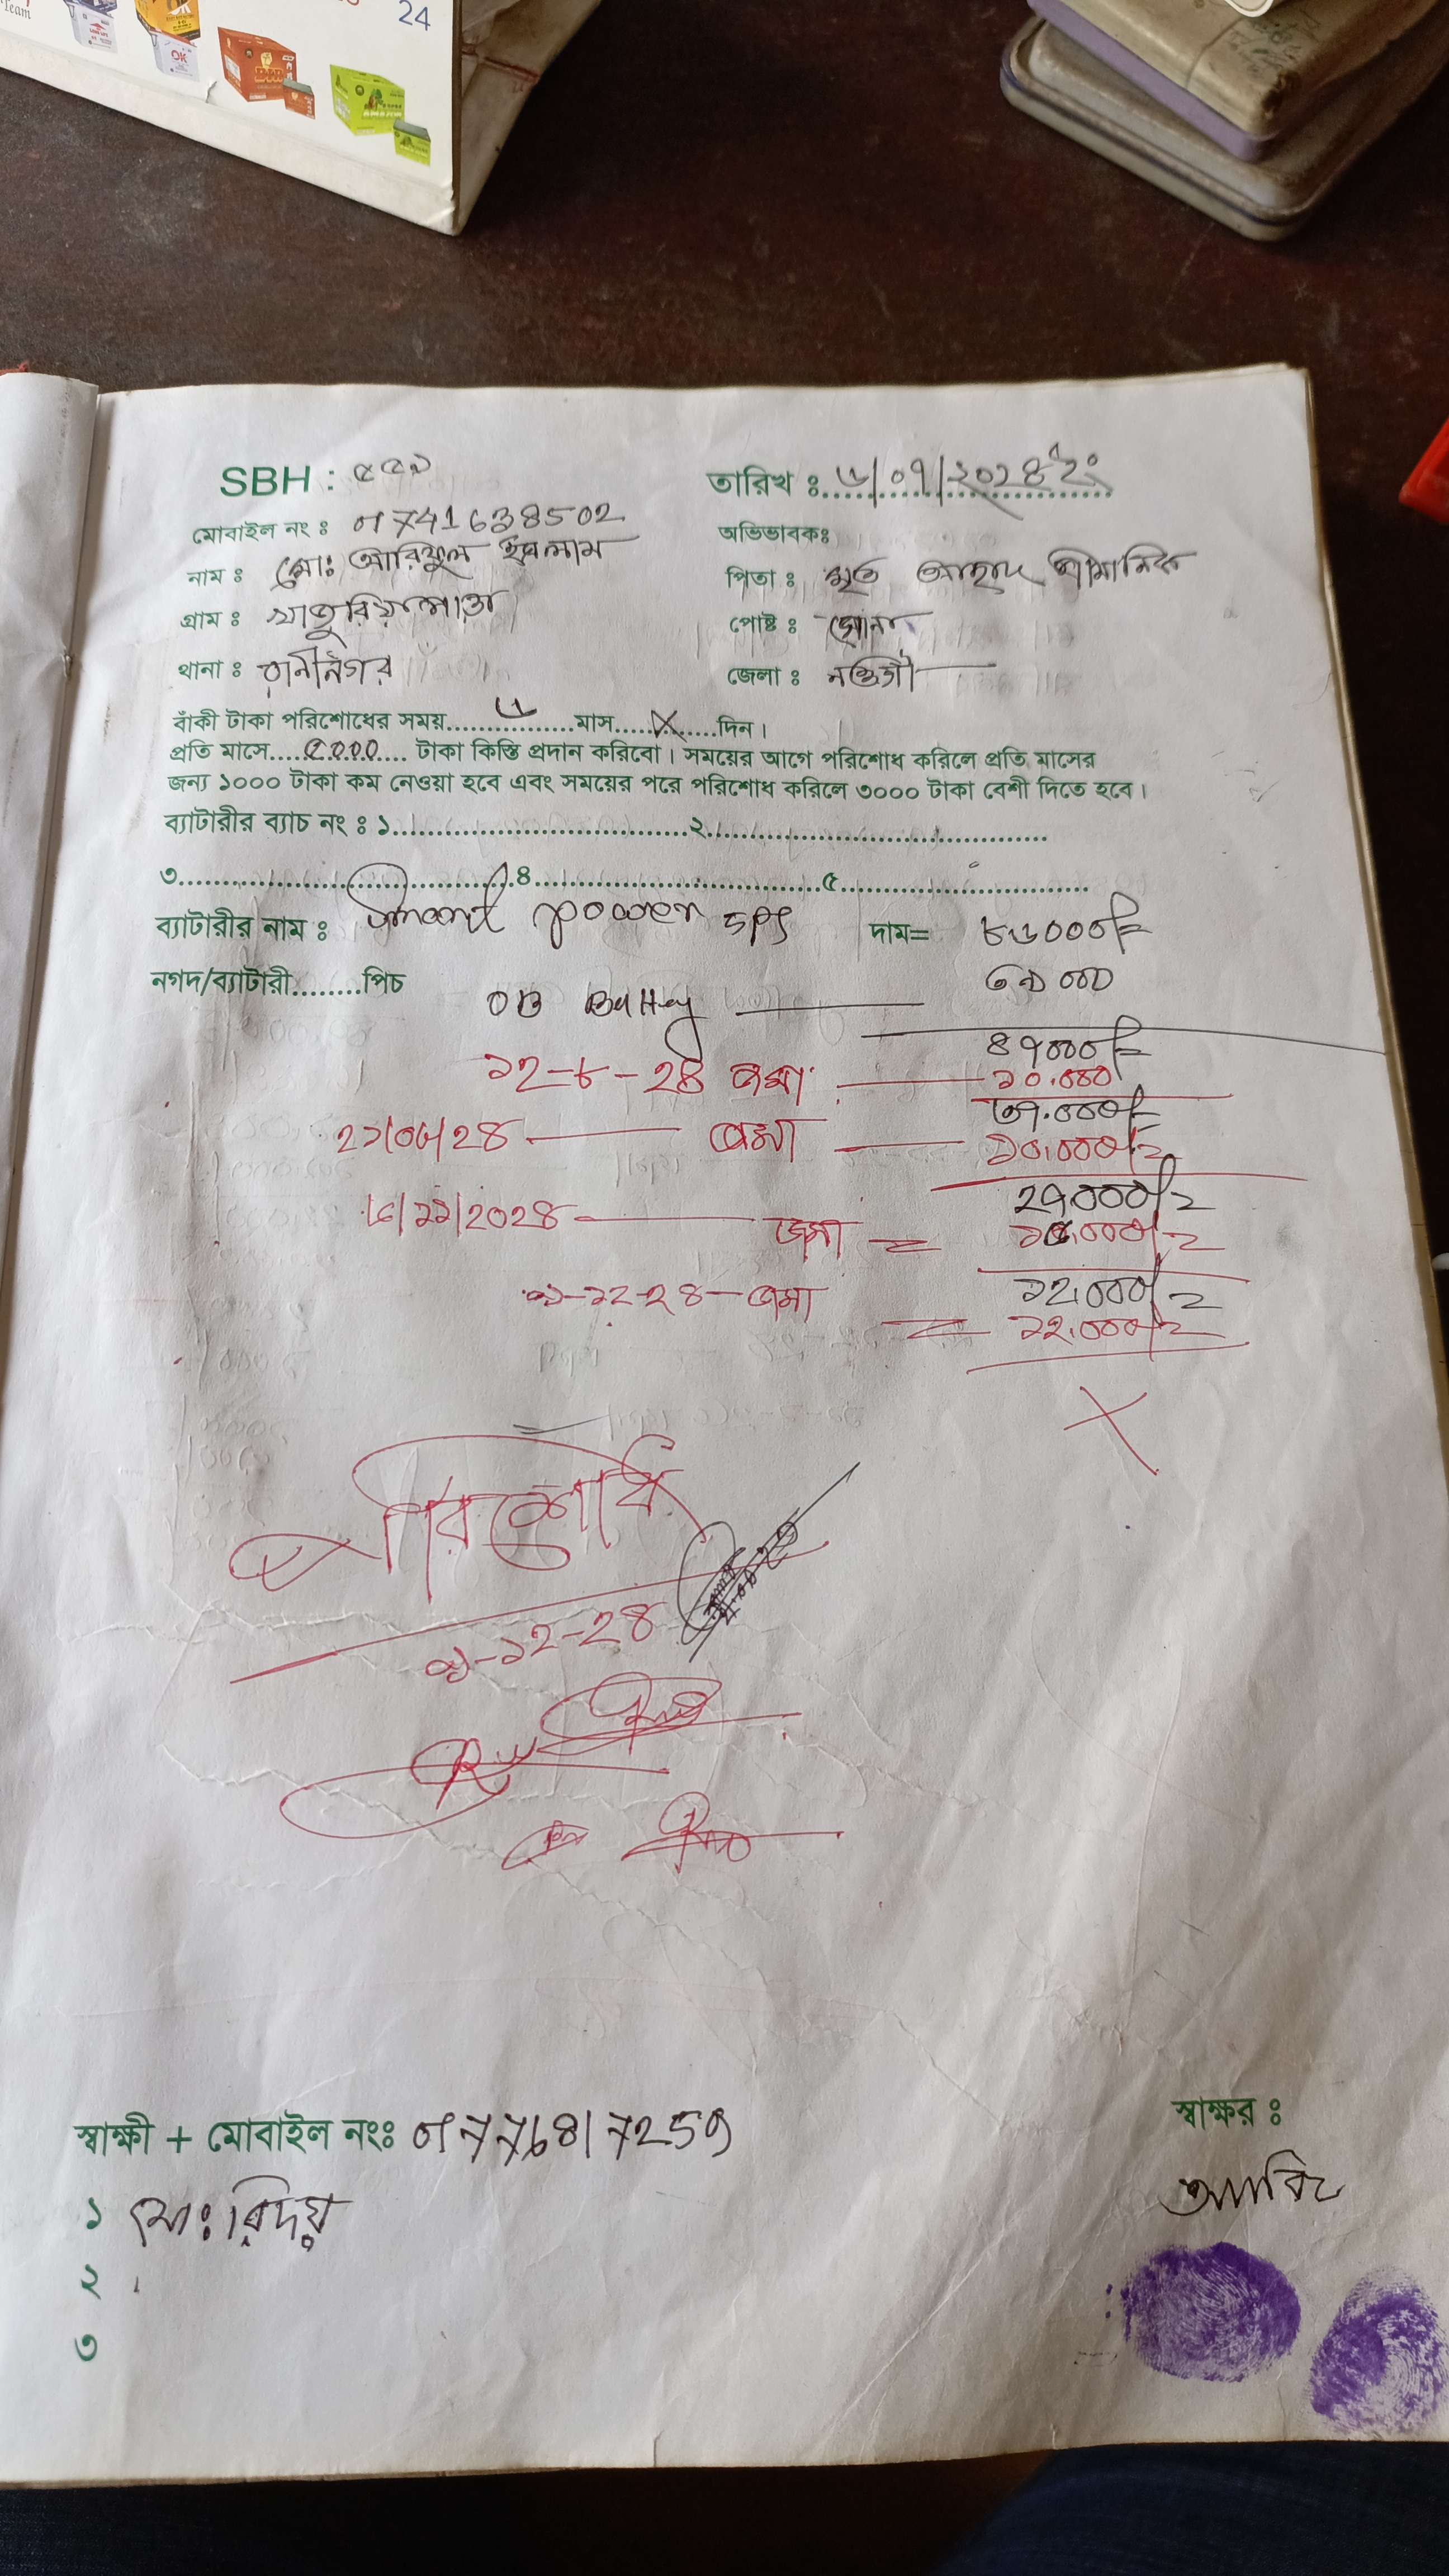 Team
24
OK
SBH : ৫৫৯
তারিখ ঃ ৬/০৭/২০২৪ ইং
মোবাইল নং ঃ 01741638502
অভিভাবকঃ
নাম ঃ মোঃ আরিফুল ইসলাম
পিতা ঃ মৃত আহাদ প্রামানিক
গ্রাম ঃ
পোষ্ট ঃ
থানা ঃ রানীনগর
জেলা ঃ নওগাঁ
বাঁকী টাকা পরিশোধের সময়......৬......মাস...X...দিন।
প্রতি মাসে....৫০০০.... টাকা কিস্তি প্রদান করিবো। সময়ের আগে পরিশোধ করিলে প্রতি মাসের
জন্য ১০০০ টাকা কম নেওয়া হবে এবং সময়ের পরে পরিশোধ করিলে ৩০০০ টাকা বেশী দিতে হবে।
ব্যাটারীর ব্যাচ নং ঃ ১..............................২..............................
৩..............................৪..............................৫..............................
ব্যাটারীর নাম ঃ Smart power 5ps দাম= ৮৬০০০/=
নগদ/ব্যাটারী........পিচ
OB Battery ৩৯০০০
৪৭০০০/=
১২-৮-২৪ জমা ১০.০০০
৩৭.০০০/=
২১/০৯/২৪ জমা ১০.০০০/=
২৭০০০/=
৬/১১/২০২৪ জমা = ১৫.০০০/=
১২.০০০/=
৩১-১২-২৪ জমা
= ১২.০০০/=
X
পরিশোধ
৩১-১২-২৪
স্বাক্ষী + মোবাইল নংঃ 01776817259
স্বাক্ষর ঃ
১ মোঃ রিদয়
আরিফ
২
৩